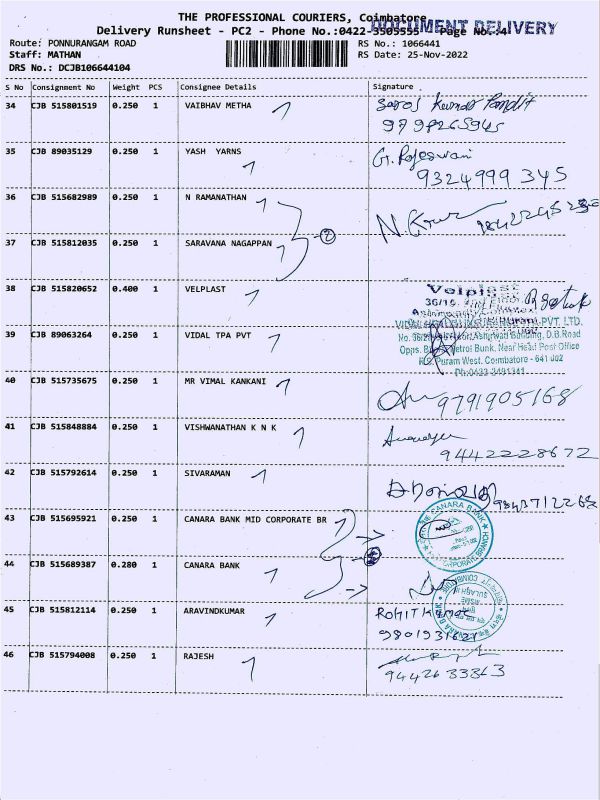 THE PROFESSIONAL COURIERS, Coimbatore
DOCUMENT DELIVERY
Delivery Runsheet - PC2 - Phone No.:0422-3505555 Page No.:4
Route: PONNURANGAM ROAD RS No.: 1066441
Staff: MATHAN RS Date: 25-Nov-2022
DRS No.: DCJB106644104
S No Consignment No Weight PCS Consignee Details Signature
34 CJB 515801519 0.250 1 VAIBHAV METHA Saroj Kumar Pandit
9798265945
35 CJB 89035129 0.250 1 YASH YARNS G. Rajeswari
9324999345
36 CJB 515682989 0.250 1 N RAMANATHAN
37 CJB 515812035 0.250 1 SARAVANA NAGAPPAN
2
38 CJB 515820652 0.400 1 VELPLAST Velplast
39 CJB 89063264 0.250 1 VIDAL TPA PVT
PVT. LTD.
Building, D.B.Road
Petrol Bunk, Near Head Post Office
R.S. Puram West, Coimbatore - 641 002
Ph:0422-2491341
40 CJB 515735675 0.250 1 MR VIMAL KANKANI 9791905168
41 CJB 515848884 0.250 1 VISHWANATHAN K N K
9442228672
42 CJB 515792614 0.250 1 SIVARAMAN
43 CJB 515695921 0.250 1 CANARA BANK MID CORPORATE BR
CANARA BANK
CORPORATE BRANCH
44 CJB 515689387 0.280 1 CANARA BANK
45 CJB 515812114 0.250 1 ARAVINDKUMAR ROHIT KUMAR
9801931621
46 CJB 515794008 0.250 1 RAJESH
9442633363